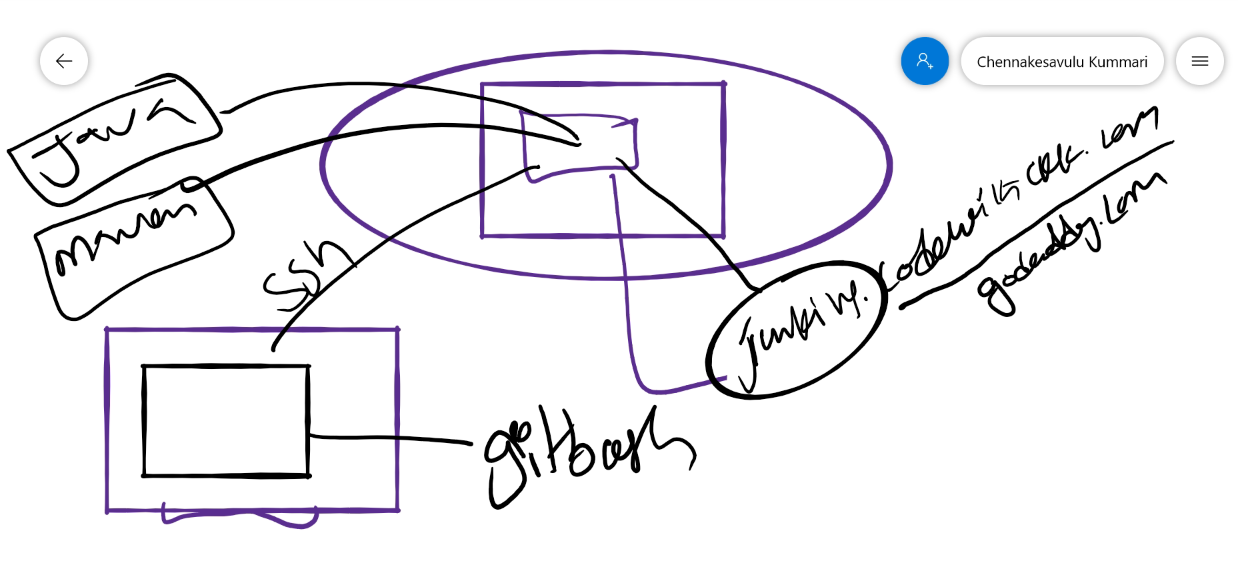 Chennakesavulu Kummari
Java
maven
ssh
jenkins.codewithckk.com
godaddy.com
gitbash